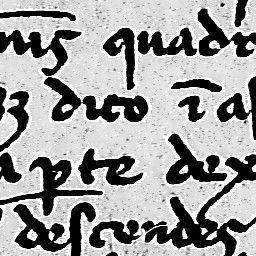 nis quadr
dito ī a
a pte dex
descendēs